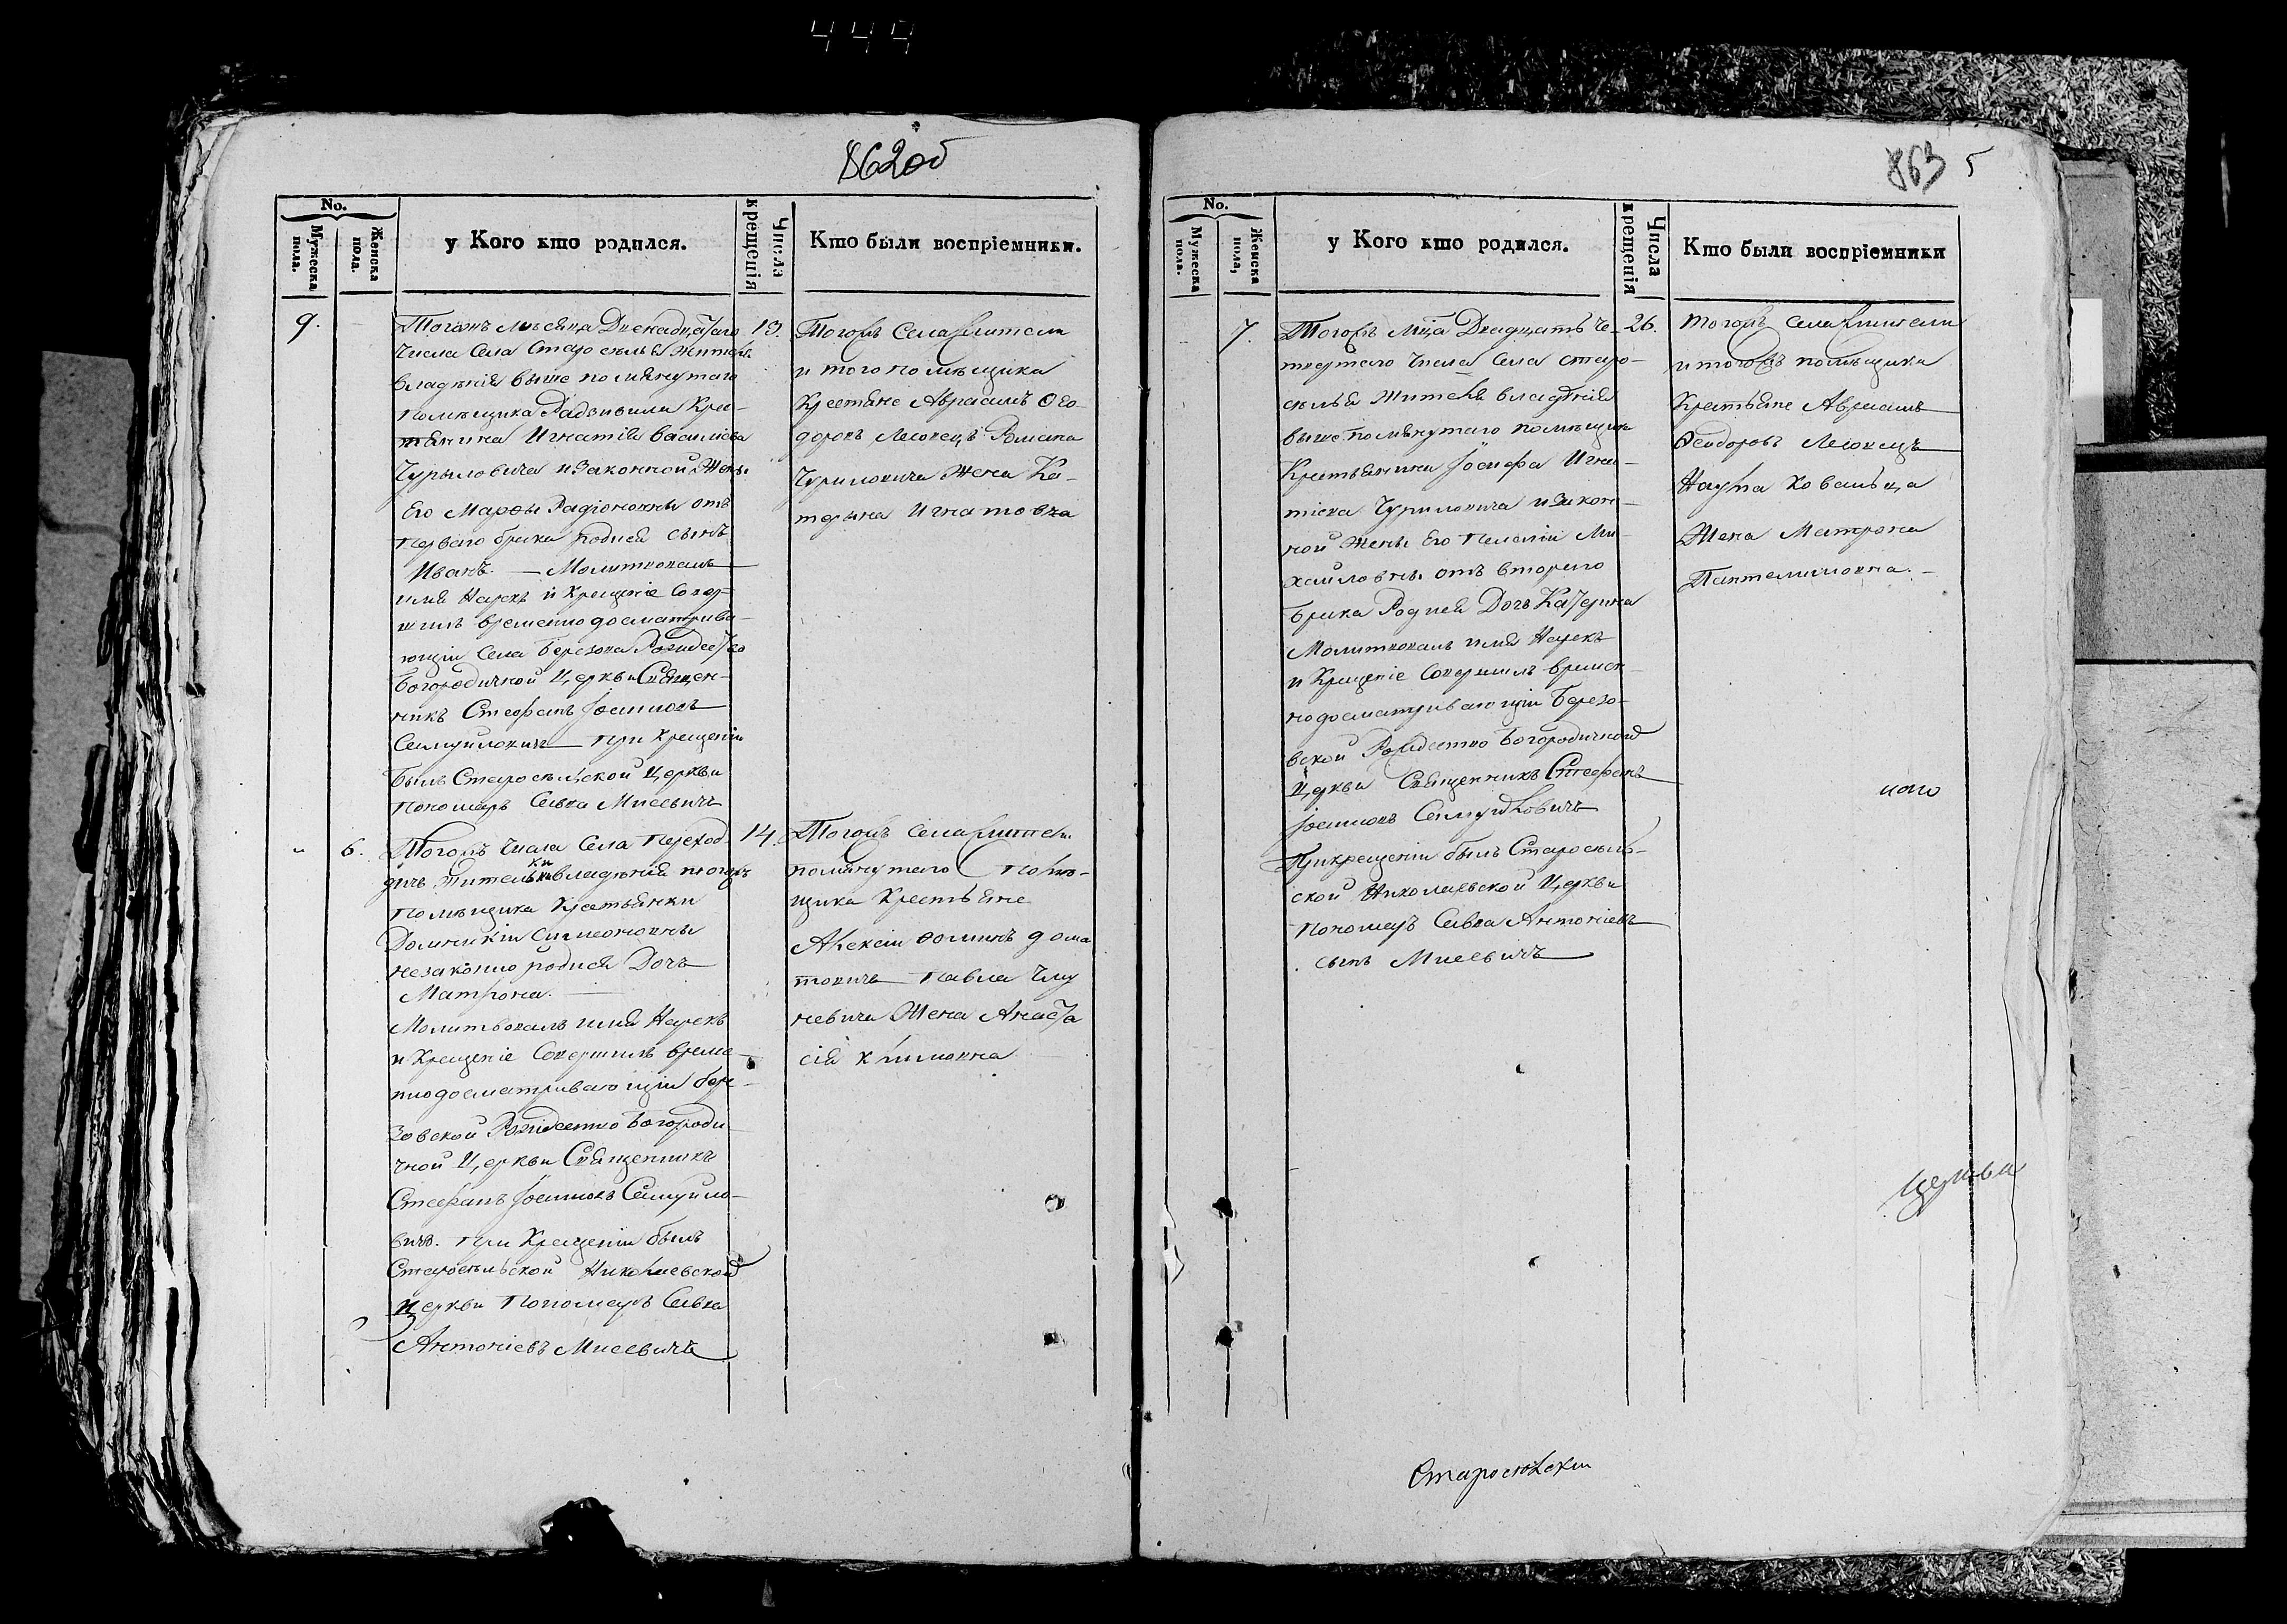 444
862об
No.
Мужеска пола.
Женска пола.
у Кого кто родился.
Числа крещенія
Кто были воспріемники.
9.
Тогожъ Месяца Двенадцатаго
Числа Села Старо селья Жителя
владенія выше помянутаго
помещика Радзивила Крес-
тянина Игнатія Васильева
Чурыловича и Законной Жены
Его Марфы Радіоновны отъ
перваго брака родися сынъ
Иванъ. — Молитвовалъ
имя Нарекъ и Крещеніе Совер-
шилъ временно досматрива-
ющій Села Березова Рождество
Богородичной Церкви Священ-
никъ Стефанъ Іоанновъ
Самуйловичъ при Крещеніи
былъ Старосельской Церкви
пономаръ Савва Мисевичъ
13.
Тогожъ Села Жители
и того помещика
Крестяне Авраамъ Фео-
доровъ Лесковецъ Романа
Чуриловича Жена Ка-
терына Игнатовна
6.
Тогожъ Числа Села Переход-
дичъ Жительки владенія тогожъ
Помещика Крестьянки
Домникіи Симеоновны
незаконно родися Дочь
Матрона.
Молитвовалъ имя Нарекъ
и Крещеніе Совершилъ време-
нно досматривающій Бере-
зовской Рождество Богороди-
чной Церкви Священникъ
Стефанъ Іоанновъ Самуйло-
вичъ. при Крещеніи былъ
Старосельской Николаевской
Церкви Пономаръ Савва
Антоніевъ Мисевичъ
14.
Тогожъ Села Жители
помянутаго поме-
щика Крестьяне
Алексій Фоминъ Дома
товичъ Павла
невича Жена Анаста
сія Климовна
863 5
No.
Мужеска пола.
Женска пола,
у Кого кто родился.
Числа крещенія
Кто были воспріемники
7.
Тогожъ Мца Двадцать Че-
твертого Числа Села Старо-
селья Жителя владенія
выше помянутаго помещика
Крестьянина Іосифа Игна-
тіева Чуриловича и Закон-
ной Жены Его Пелагіи Ми-
хайловны отъ второго
брака Родися Дочь Катерина
Молитвовалъ имя Нарекъ
и Крещеніе Совершилъ времен-
но досматривающій Березо-
вской Рождество Богородичной
Церкви Священникъ Стефанъ
Іоанновъ Самуйловичъ
При крещеніи былъ Старосель-
ской Николаевской Церкви
Пономаръ Савва Антоніевъ
сынъ Мисевичъ
26.
Тогожъ Села Жители
и тогожъ помещика
Крестьяне Авраамъ
Феодоровъ Лесковецъ
Наума Ковальца
Жена Матрона
Пантелимовна. —
ного
Церкви
Старосельскіи